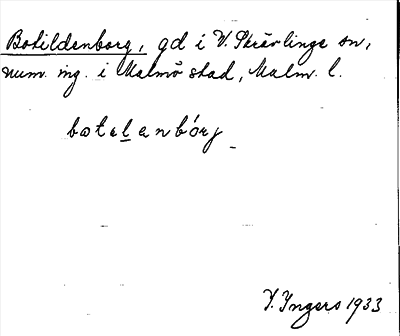 Botildenborg, gd i V. Skrävlinge sn,
num. ing. i Malmö stad, Malm. l.
botelenbórj
I. Ingers 1933